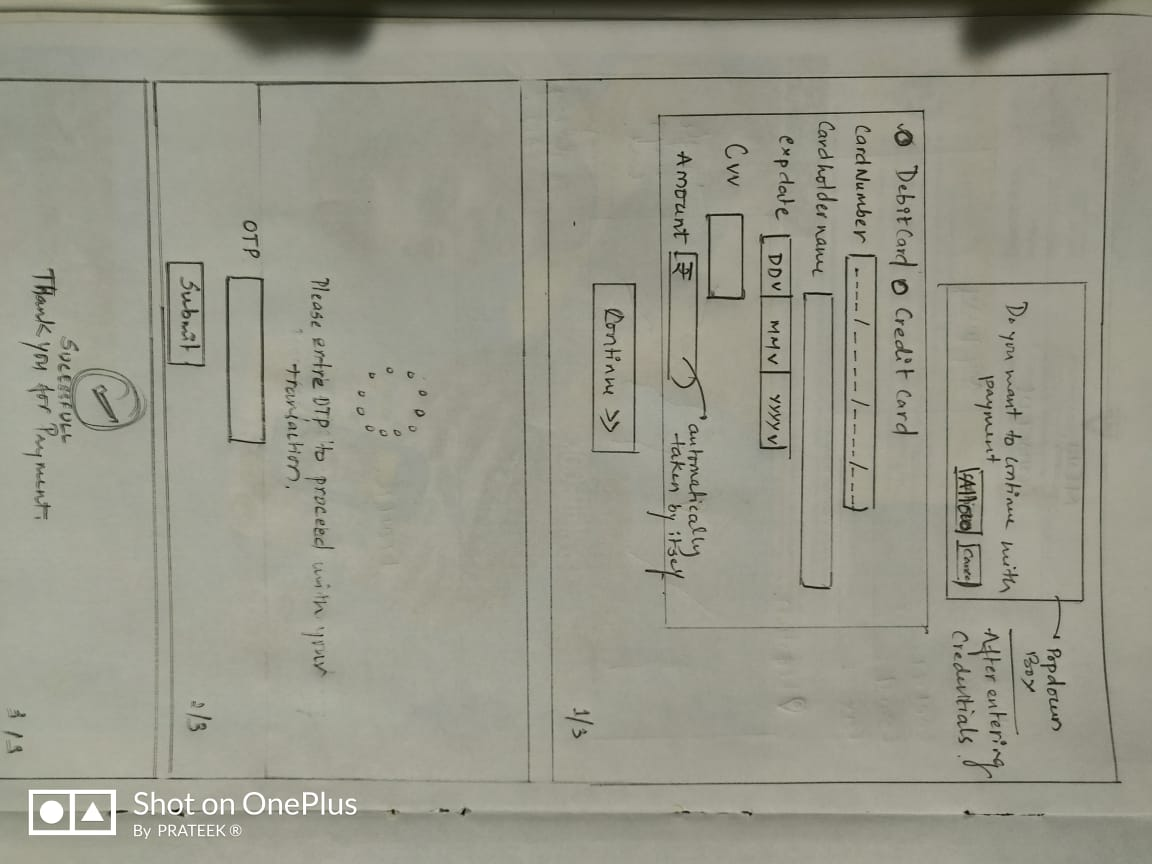 Do you want to continue with
payment
Popdown
Box
After entering
Credentials.
Debit Card Credit Card
Card Number ----/----/----/---
Cardholder name
exp date DDV MMV YYYYV
CVV
Amount ₹
automatically
taken by itself
Continue >>
1/3
Please entre OTP to proceed with your
transaction.
OTP
Submit
2/3
SUCESSFULL
Thank you for Payment.
3/3
Shot on OnePlus
By PRATEEK ®